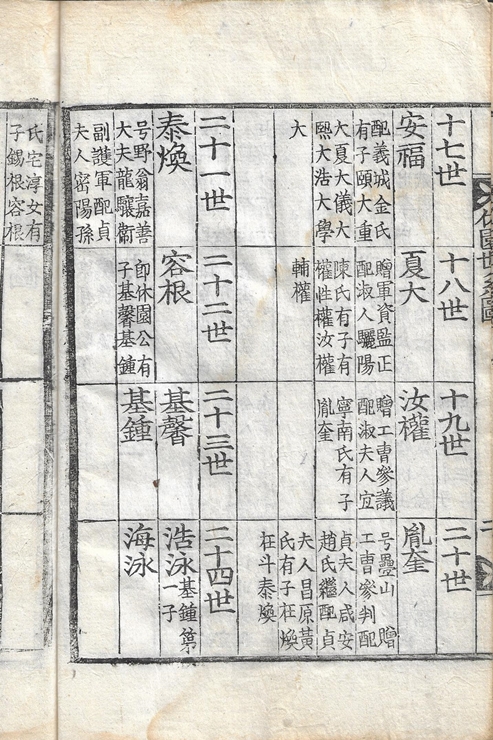 休園世系圖
二
十七世
安福
配義城金氏
有子頤大重
大夏大儀大
熙大浩大學
大
十八世
夏大
贈軍資監正
配淑人驪陽
陳氏有子有
權性權汝權
輔權
十九世
汝權
贈工曺參議
配淑夫人宜
寧南氏有子
胤奎
二十世
胤奎
号疊山 贈
工曺參判配
貞夫人咸安
趙氏繼配貞
夫人昌原黃
氏有子枉煥
枉斗泰煥
二十一世
泰煥
号野翁嘉善
大夫龍驤衛
副護軍配貞
夫人密陽孫
二十二世
容根
卽休園公有
子基馨基鍾
二十三世
基馨
基鍾
二十四世
浩泳
基鍾第
一子
海泳
氏宅淳女有
子錫根容根